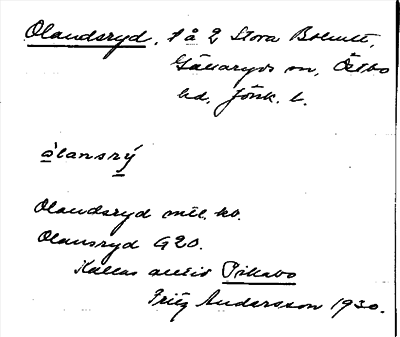 Olandsryd, 1 å 2 Stora Bolmult,
Gällaryds sn, Östbo
hd, Jönk. l.
ò̀lansrý
Olandsryd mtl. kb.
Olansryd G20.
Kallas även Pikabo
Fritz Andersson 1930.